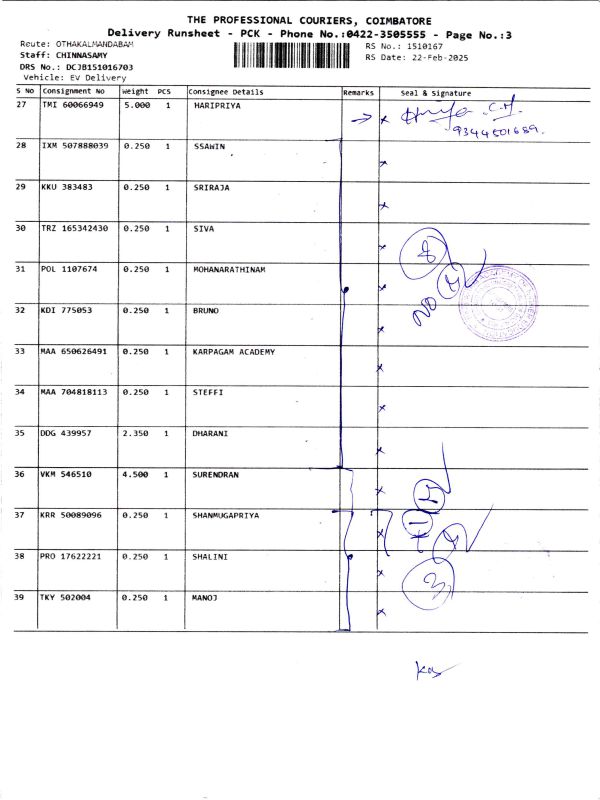 THE PROFESSIONAL COURIERS, COIMBATORE
Delivery Runsheet - PCK - Phone No.:0422-3505555 - Page No.:3
Route: OTHAKALMANDABAM
RS No.: 1510167
Staff: CHINNASAMY
RS Date: 22-Feb-2025
DRS No.: DCJB151016703
Vehicle: EV Delivery
S No Consignment No Weight PCS Consignee Details Remarks Seal & Signature
27 TMI 60066949 5.000 1 HARIPRIYA
28 IXM 507888039 0.250 1 SSAWIN
29 KKU 383483 0.250 1 SRIRAJA
30 TRZ 165342430 0.250 1 SIVA
8
31 POL 1107674 0.250 1 MOHANARATHINAM
NO
32 KDI 775053 0.250 1 BRUNO
33 MAA 650626491 0.250 1 KARPAGAM ACADEMY
34 MAA 704818113 0.250 1 STEFFI
35 DDG 439957 2.350 1 DHARANI
36 VKM 546510 4.500 1 SURENDRAN
37 KRR 50089096 0.250 1 SHANMUGAPRIYA
38 PRO 17622221 0.250 1 SHALINI
3
39 TKY 502004 0.250 1 MANOJ